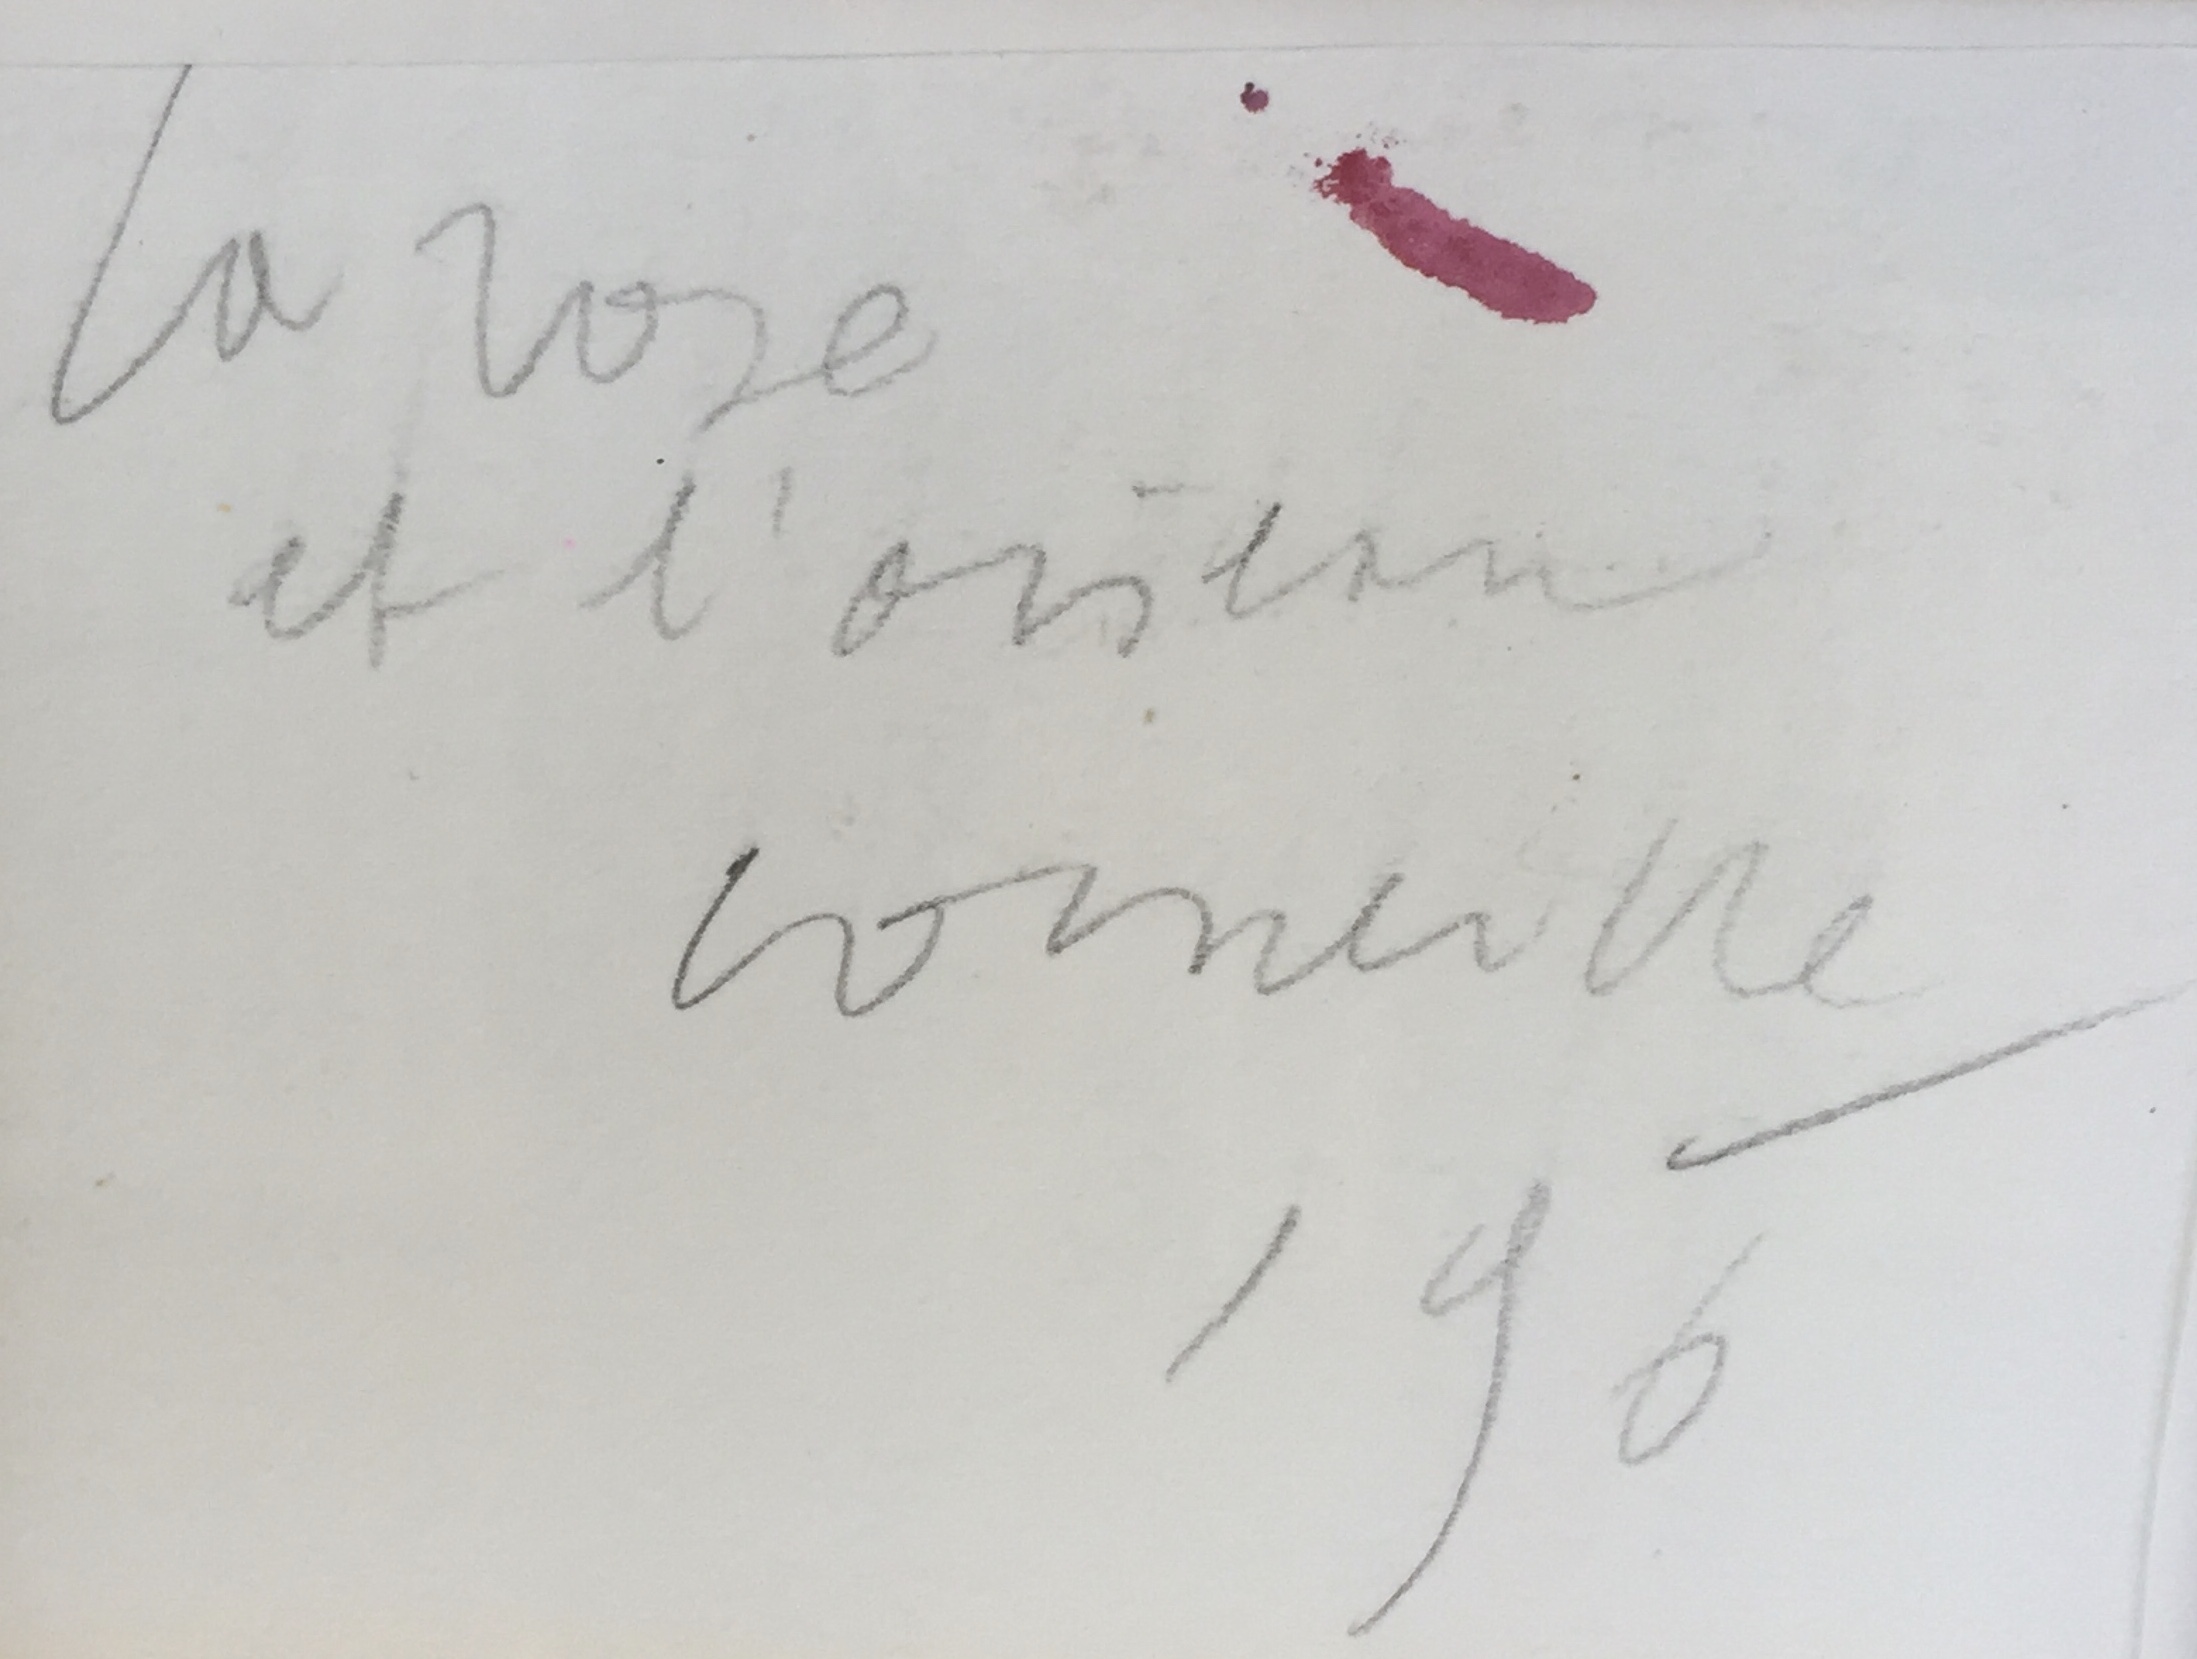 La rose
et l'oiseau
Corneille
196